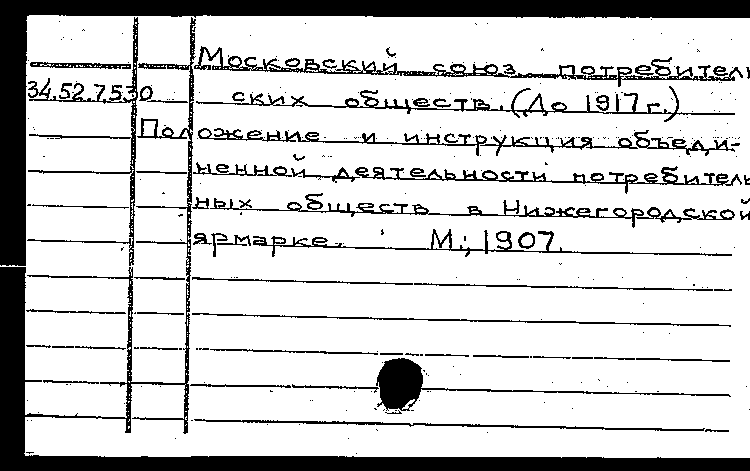 Московский союз потребитель
34.52.7530 ских обществ. (До 1917 г.)
Положение и инструкция объеди-
ненной деятельности потребитель
ных обществ в Нижегородской
ярмарке. М.; 1907.